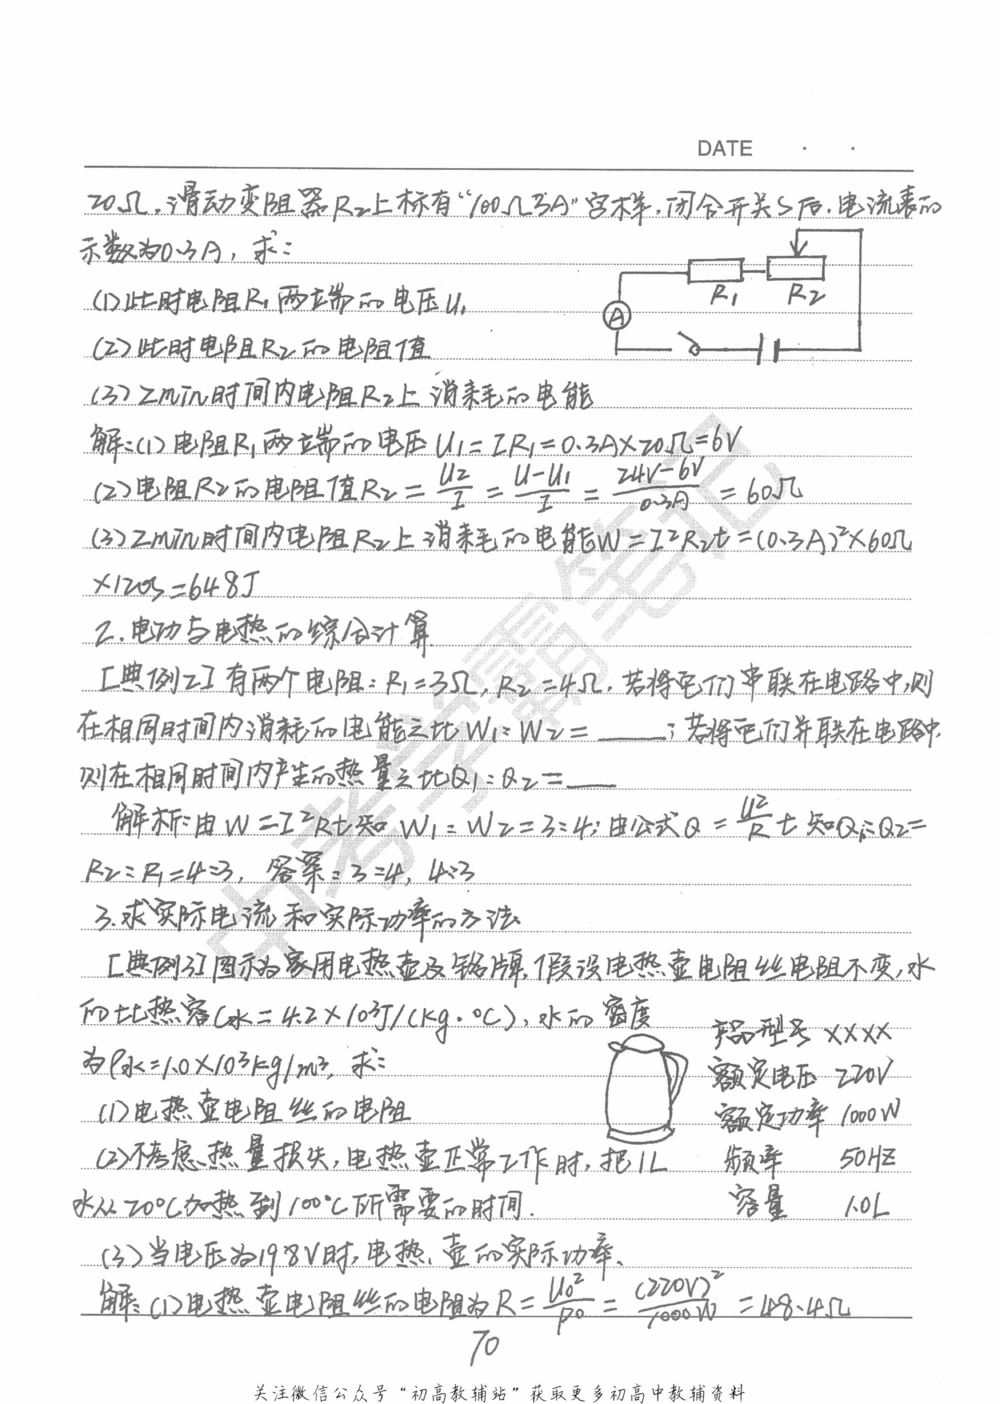 DATE · ·
20Ω,滑动变阻器R₂上标有“100Ω 3A”字样,闭合开关S后,电流表的
示数为0.3A,求:
(1)此时电阻R₁两端的电压U₁
(2)此时电阻R₂的电阻值
(3)2min时间内电阻R₂上消耗的电能
R₁ R₂
A
解:(1)电阻R₁两端的电压U₁=IR₁=0.3A×20Ω=6V
(2)电阻R₂的电阻值R₂=U₂/I=(U-U₁)/I=(24V-6V)/0.3A=60Ω
(3)2min时间内电阻R₂上消耗的电能W=I²R₂t=(0.3A)²×60Ω
×120s=648J
2.电功与电热的综合计算
[典例2]有两个电阻:R₁=3Ω,R₂=4Ω,若将它们串联在电路中,则
在相同时间内消耗的电能之比W₁:W₂=____;若将它们并联在电路中,
则在相同时间内产生的热量之比Q₁:Q₂=___
解析:由W=I²Rt知W₁:W₂=3:4;由公式Q=U²/R t知Q₁:Q₂=
R₂:R₁=4:3,答案:3:4,4:3
3.求实际电流和实际功率的方法
[典例3]图示为家用电热壶及铭牌,假设电热壶电阻丝电阻不变,水
的比热容C水=4.2×10³J/(kg·℃),水的密度
为ρ水=1.0×10³kg/m³,求:
(1)电热壶电阻丝的电阻
(2)不考虑热量损失,电热壶正常工作时,把1L
水从20℃加热到100℃所需要的时间.
(3)当电压为198V时,电热壶的实际功率.
产品型号 XXXX
额定电压 220V
额定功率 1000W
频率 50HZ
容量 1.0L
解:(1)电热壶电阻丝的电阻为R=U₀²/P₀=(220V)²/1000W=48.4Ω
70
中考学霸笔记
关注微信公众号“初高教辅站”获取更多初高中教辅资料